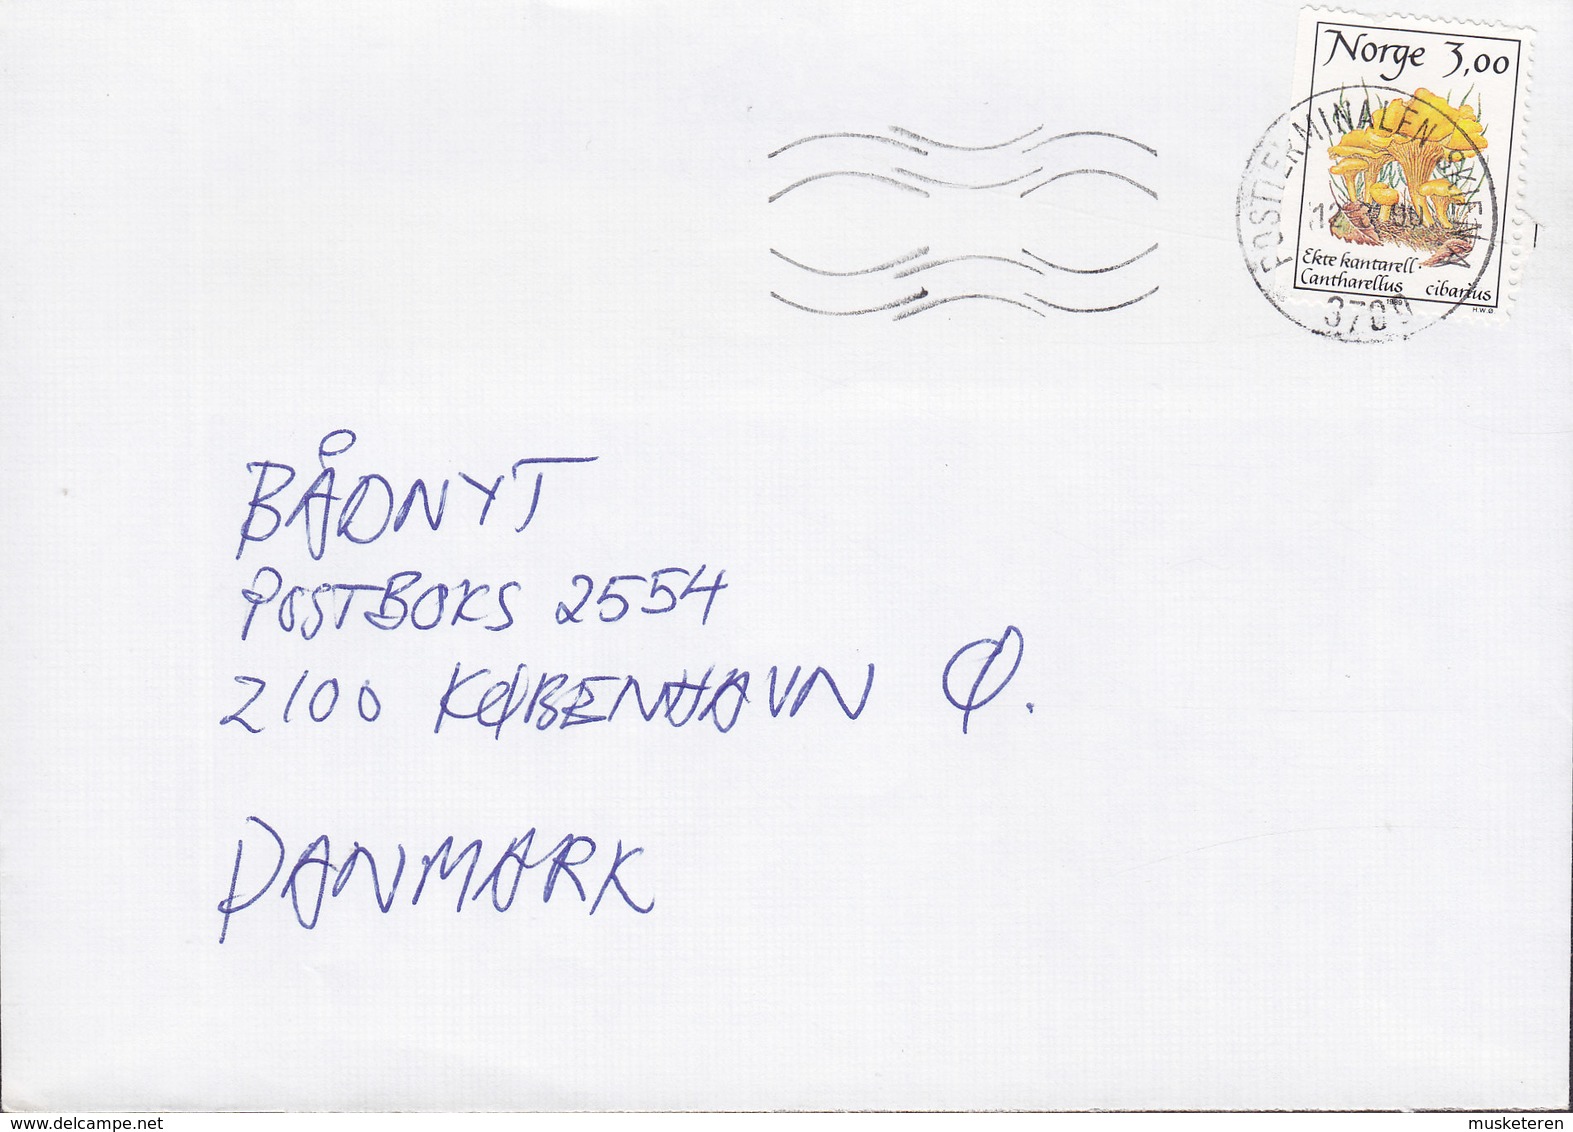 Norge 3,00
POSTTERMINALEN SKIEN
12 3 90
Ekte kantarell.
Cantharellus cibarius
1989
H.W.Ø
3709
BÅDNYT
POSTBOKS 2554
2100 KØBENHAVN Ø.
DANMARK
www.delcampe.net
musketeren